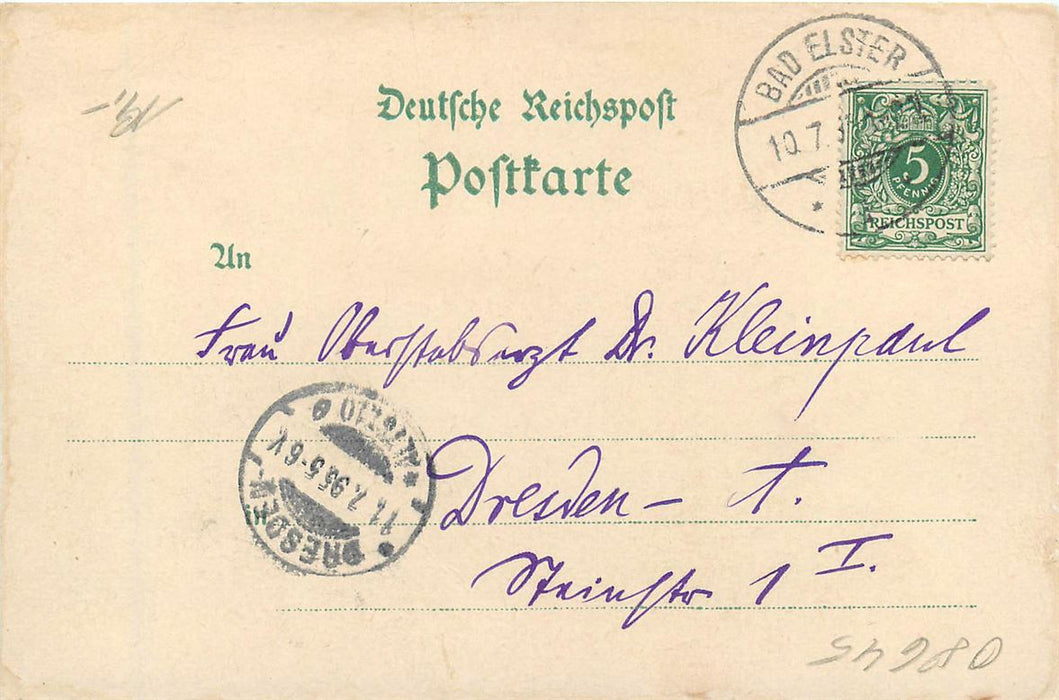 BAD ELSTER
10.7.
5
PFENNIG
REICHSPOST
Deutsche Reichspost
Postkarte
An
Frau Oberstabsarzt Dr. Kleinpaul
Dresden – A.
Steinstr 1 I.
DRESDEN
11.7.95.5-6V